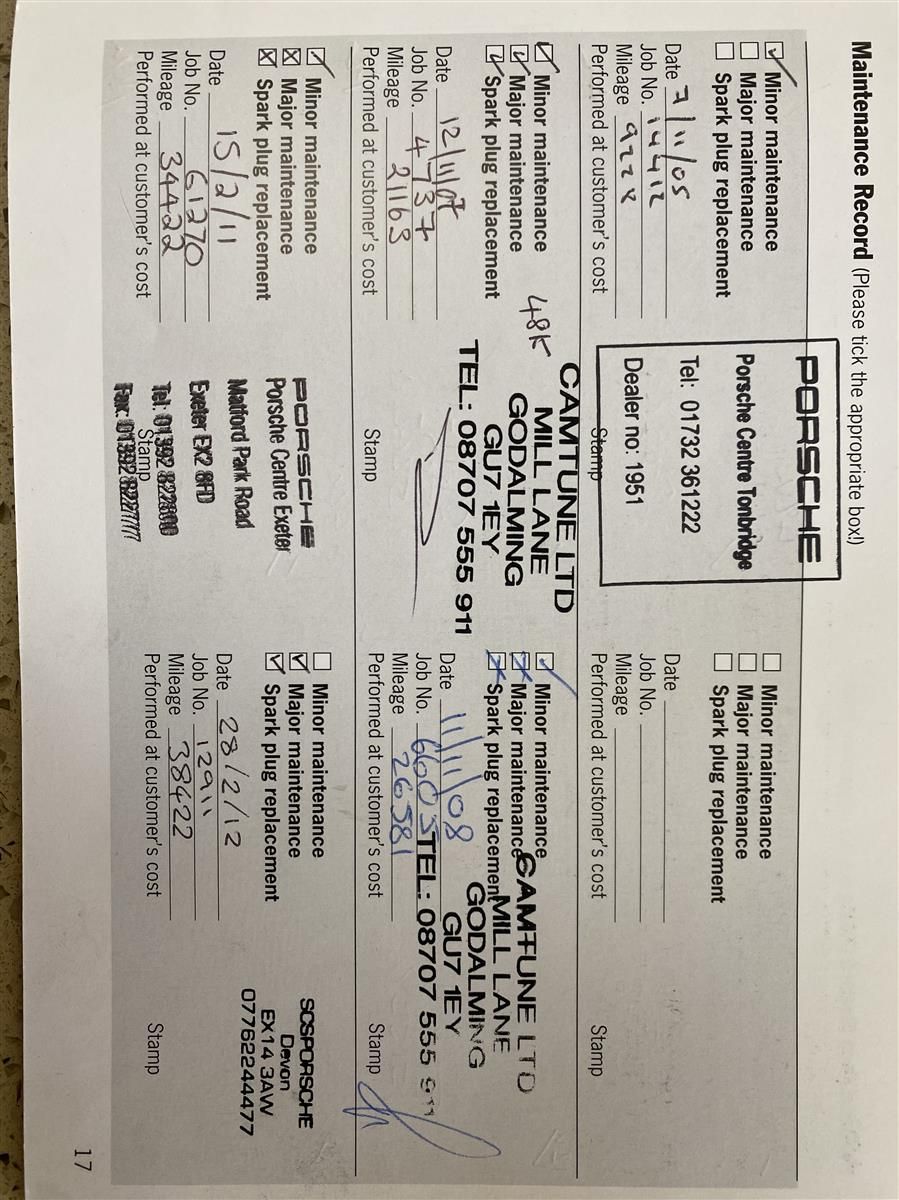 Maintenance Record (Please tick the appropriate box!)
Minor maintenance
Major maintenance
Spark plug replacement
Date 7/11/05
Job No. 14412
Mileage 9228
Performed at customer's cost
PORSCHE
Porsche Centre Tonbridge
Tel: 01732 361222
Dealer no: 1951
Stamp
Minor maintenance
Major maintenance
Spark plug replacement
Date
Job No.
Mileage
Performed at customer's cost
Stamp
Minor maintenance
Major maintenance
Spark plug replacement
Date 12/11/07
Job No. 4737
Mileage 21163
Performed at customer's cost
48K
CAMTUNE LTD
MILL LANE
GODALMING
GU7 1EY
TEL: 08707 555 911
Stamp
Minor maintenance
Major maintenance
Spark plug replacement
Date 11/11/08
Job No. 6605
Mileage 26581
Performed at customer's cost
CAMTUNE LTD
MILL LANE
GODALMING
GU7 1EY
TEL: 08707 555 911
Stamp
Minor maintenance
Major maintenance
Spark plug replacement
Date 15/2/11
Job No. 61270
Mileage 34422
Performed at customer's cost
PORSCHE
Porsche Centre Exeter
Matford Park Road
Exeter EX2 8FD
Tel: 01392 822800
Stamp
Fax: 01392 822777
Minor maintenance
Major maintenance
Spark plug replacement
Date 28/2/12
Job No. 12911
Mileage 38422
Performed at customer's cost
SCSPORSCHE
Devon
EX14 3AW
07762244477
Stamp
17